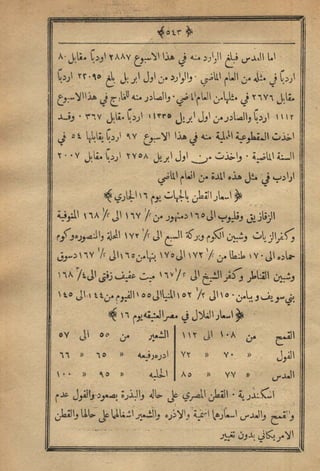 ﴿ ٥٤٣ ﴾
اما العدس فبلغ الوارد منه في هذا الاسبوع ٢٨٨٧ اردبًا مقابل ٨٠
اردبًا في مثله من العام الماضي ٠ والوارد من اول ابريل بلغ ٢٢٠٩٥ اردبًا
مقابل ٢٦٧٦ في مثلها من العام الماضي ٠ والصادر منه للخارج في هذا الاسبوع
١١١٢ اردبًا والصادر من اول ابريل ١١٣٣٥ اردبًا مقابل ٣٦٧ ٠ وقد
اخذت المقطوعية المحلية منه في هذا الاسبوع ٩٧ اردبًا يقابلها ٥٤ في
السنة الماضية ٠ واخذت من اول ابريل ٢٧٥٨ اردبًا مقابل ٢٠٠٧
ارادب في مثل هذه المدة من العام الماضي
﴿ اسعار القطن بالجهات يوم ١٦ الجاري ﴾
الزقازيق وقليوب الى ١٦٥ دمنهور من الى ١٦٨ المنوفية
وكفر الزيات وشبين الكوم وبركة السبع الى ١٧٢ المحلة والمنصوره وكوم
حماده الى ١٧٠ طنطا من الى ١٧٥ الى ١٦٧ دسوق
وشبين القناطر وكفر الشيخ الى ١٦٧ ميت عفيف زفتى الى ١٦٨
بني سويف الى ١٥٢ المنيا الى ١٥٥ الفيوم من ١٤٤ الى ١٤٥
﴿ اسعار الغلال في مصر العتيقه يوم ١٦ ﴾
القمح من ١٠٨ الى ١١٢ الشعير من ٥٥ الى ٥٧
الفول » ٧٠ » ٧٢ ادره رفيعه » ٦٥ » ٦٦
العدس » ٧٧ » ٨٥ الحلبه » ٩٥ » ١٠٠
اسكندرية ٠ القطن المصري على حاله والبذرة بصعود والفول عدم
والقمح والعدس اسعارهما اسمية والاذره والشعير اشغالهما على حالها والقطن
الامريكاني بدون تغيير